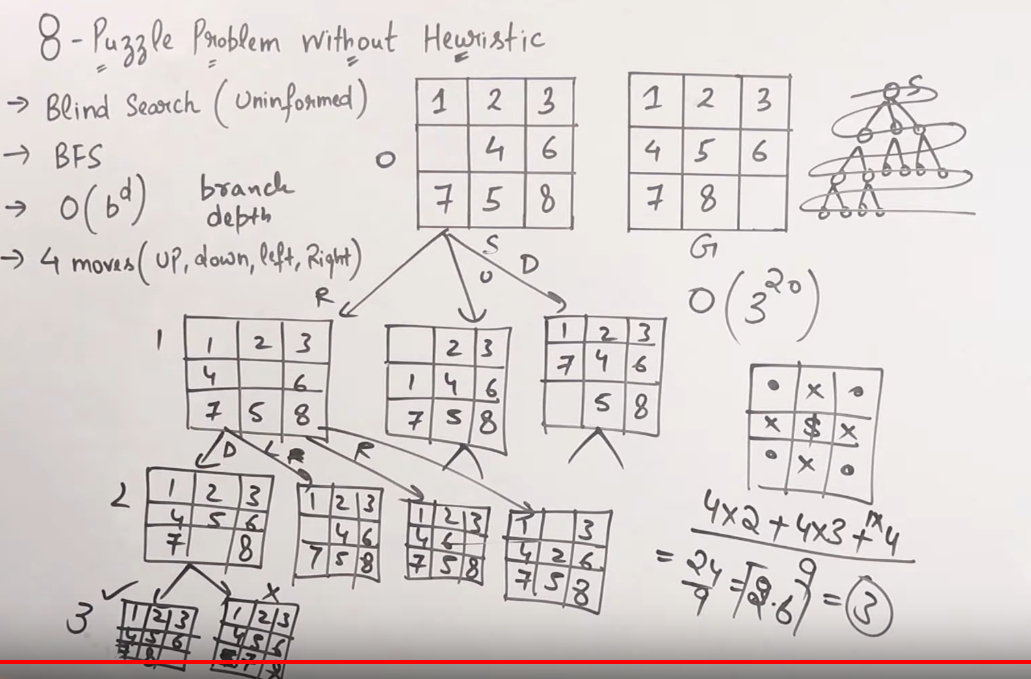 8-Puzzle Problem without Heuristic
→ Blind Search (Uninformed)
→ BFS
→ O(b^d) branch depth
→ 4 moves (UP, down, left, Right)
0
1 2 3
4 6
7 5 8
S
1 2 3
4 5 6
7 8
G
S
R
U
D
O(3^20)
1
1 2 3
4 6
7 5 8
2 3
1 4 6
7 5 8
1 2 3
7 4 6
5 8
• x •
x $ x
• x •
D
L
R
2
1 2 3
4 5 6
7 8
1 2 3
4 6
7 5 8
1 2 3
4 6
7 5 8
1 3
4 2 6
7 5 8
4x2 + 4x3 + 1x4
9
= 24/9 = ⌈2.6⌉ = 3
3
✓
1 2 3
4 5 6
7 8
x
1 2 3
4 5 6
7 8